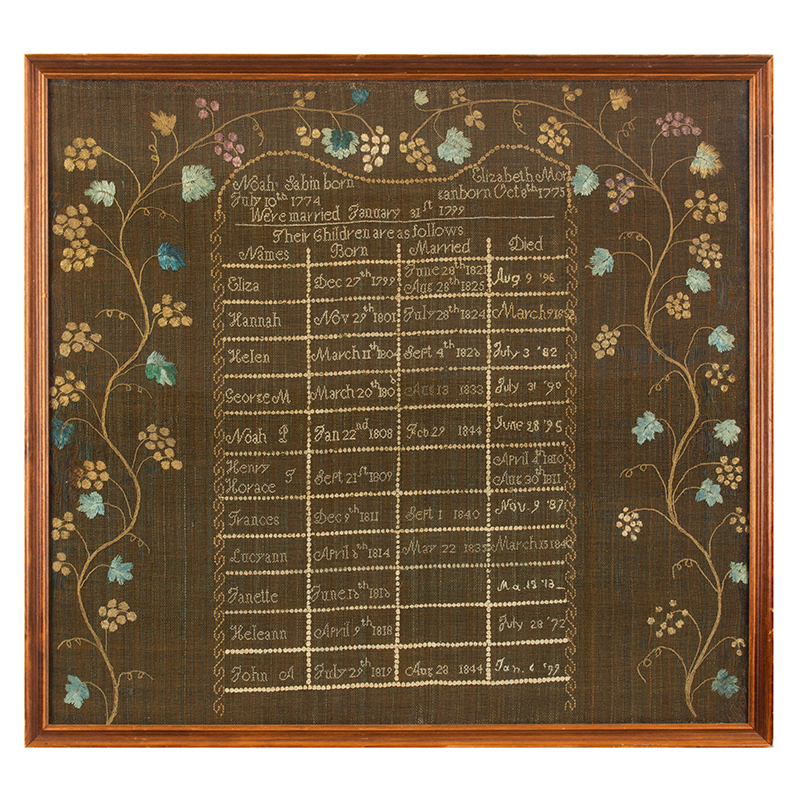 Noah Sabin born Elizabeth Mor
July 10th 1774 sanborn Oct 8th 1775
Were married January 31st 1799
Their Children are as follows
Names Born Married Died
Eliza Dec 27th 1799 June 28th 1821 Aug 28th 1825 Aug 9 '96
Hannah Nov 29th 1801 July 28th 1824 March 9
Helen March 11th 180 Sept 4th July 3 '82
George M March 20th 180 Aug 13 1833 July 31 '90
Noah P Jan 22nd 1808 Feb 29 1844 June 28 '95
Henry April 4th 1810
Horace F Sept 21st 1809 Aug 30th 1811
Frances Dec 9th 1811 Sept 1 1840 Nov 9 '87
Lucyann April 8th 1814 May 22 183 March 15 184
Janette June
Heleann April 9th 1818 July 28 '72
John A July 29th 1819 Aug 28 1844 Jan 6 '99